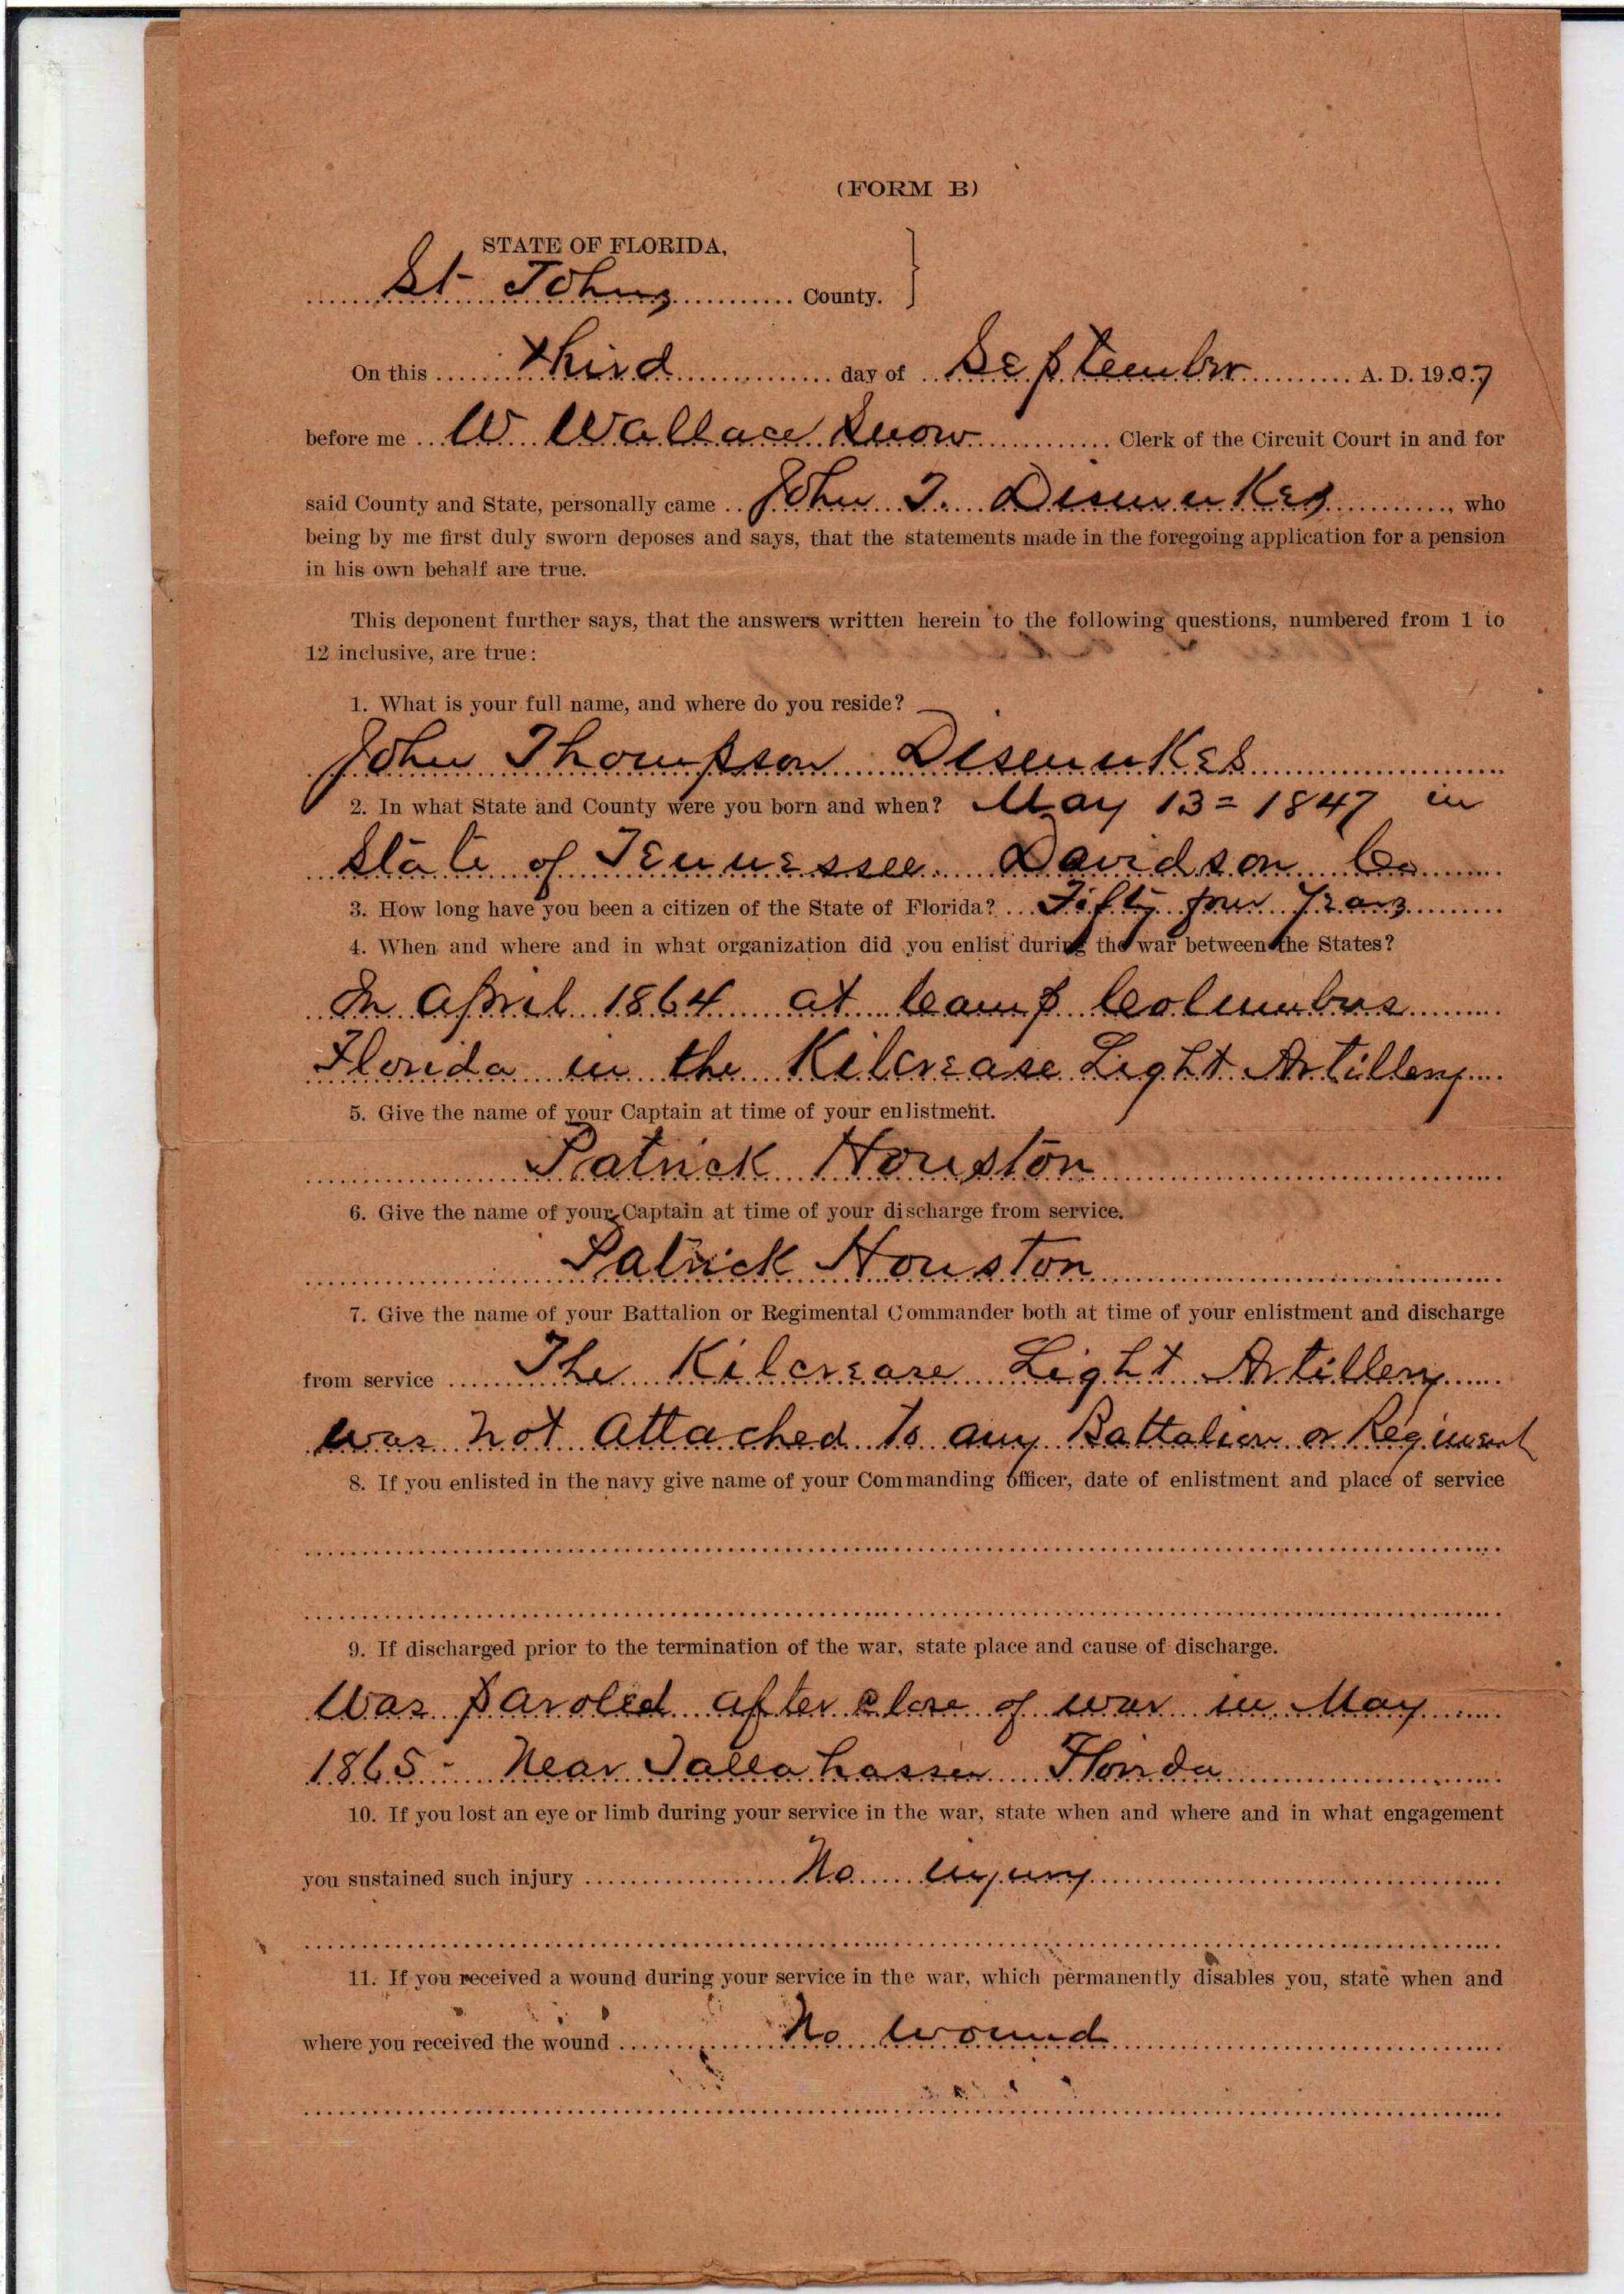 (FORM B)
STATE OF FLORIDA,
St Johns County.
On this third day of September A. D. 1907
before me W Wallace Snow Clerk of the Circuit Court in and for
said County and State, personally came John T. Dismukes, who
being by me first duly sworn deposes and says, that the statements made in the foregoing application for a pension
in his own behalf are true.
This deponent further says, that the answers written herein to the following questions, numbered from 1 to
12 inclusive, are true:
1. What is your full name, and where do you reside?
John Thompson Dismukes
2. In what State and County were you born and when? May 13 = 1847 in
State of Tennessee Davidson Co
3. How long have you been a citizen of the State of Florida? Fifty four Years
4. When and where and in what organization did you enlist during the war between the States?
In April 1864 at Camp Columbus
Florida in the Kilcrease Light Artillery
5. Give the name of your Captain at time of your enlistment.
Patrick Houston
6. Give the name of your Captain at time of your discharge from service.
Patrick Houston
7. Give the name of your Battalion or Regimental Commander both at time of your enlistment and discharge
from service The Kilcrease Light Artillery
was not attached to any Battalion or Regiment
8. If you enlisted in the navy give name of your Commanding officer, date of enlistment and place of service
9. If discharged prior to the termination of the war, state place and cause of discharge.
Was paroled after close of war in May
1865 - Near Tallahassee Florida
10. If you lost an eye or limb during your service in the war, state when and where and in what engagement
you sustained such injury No injury
11. If you received a wound during your service in the war, which permanently disables you, state when and
where you received the wound No wound